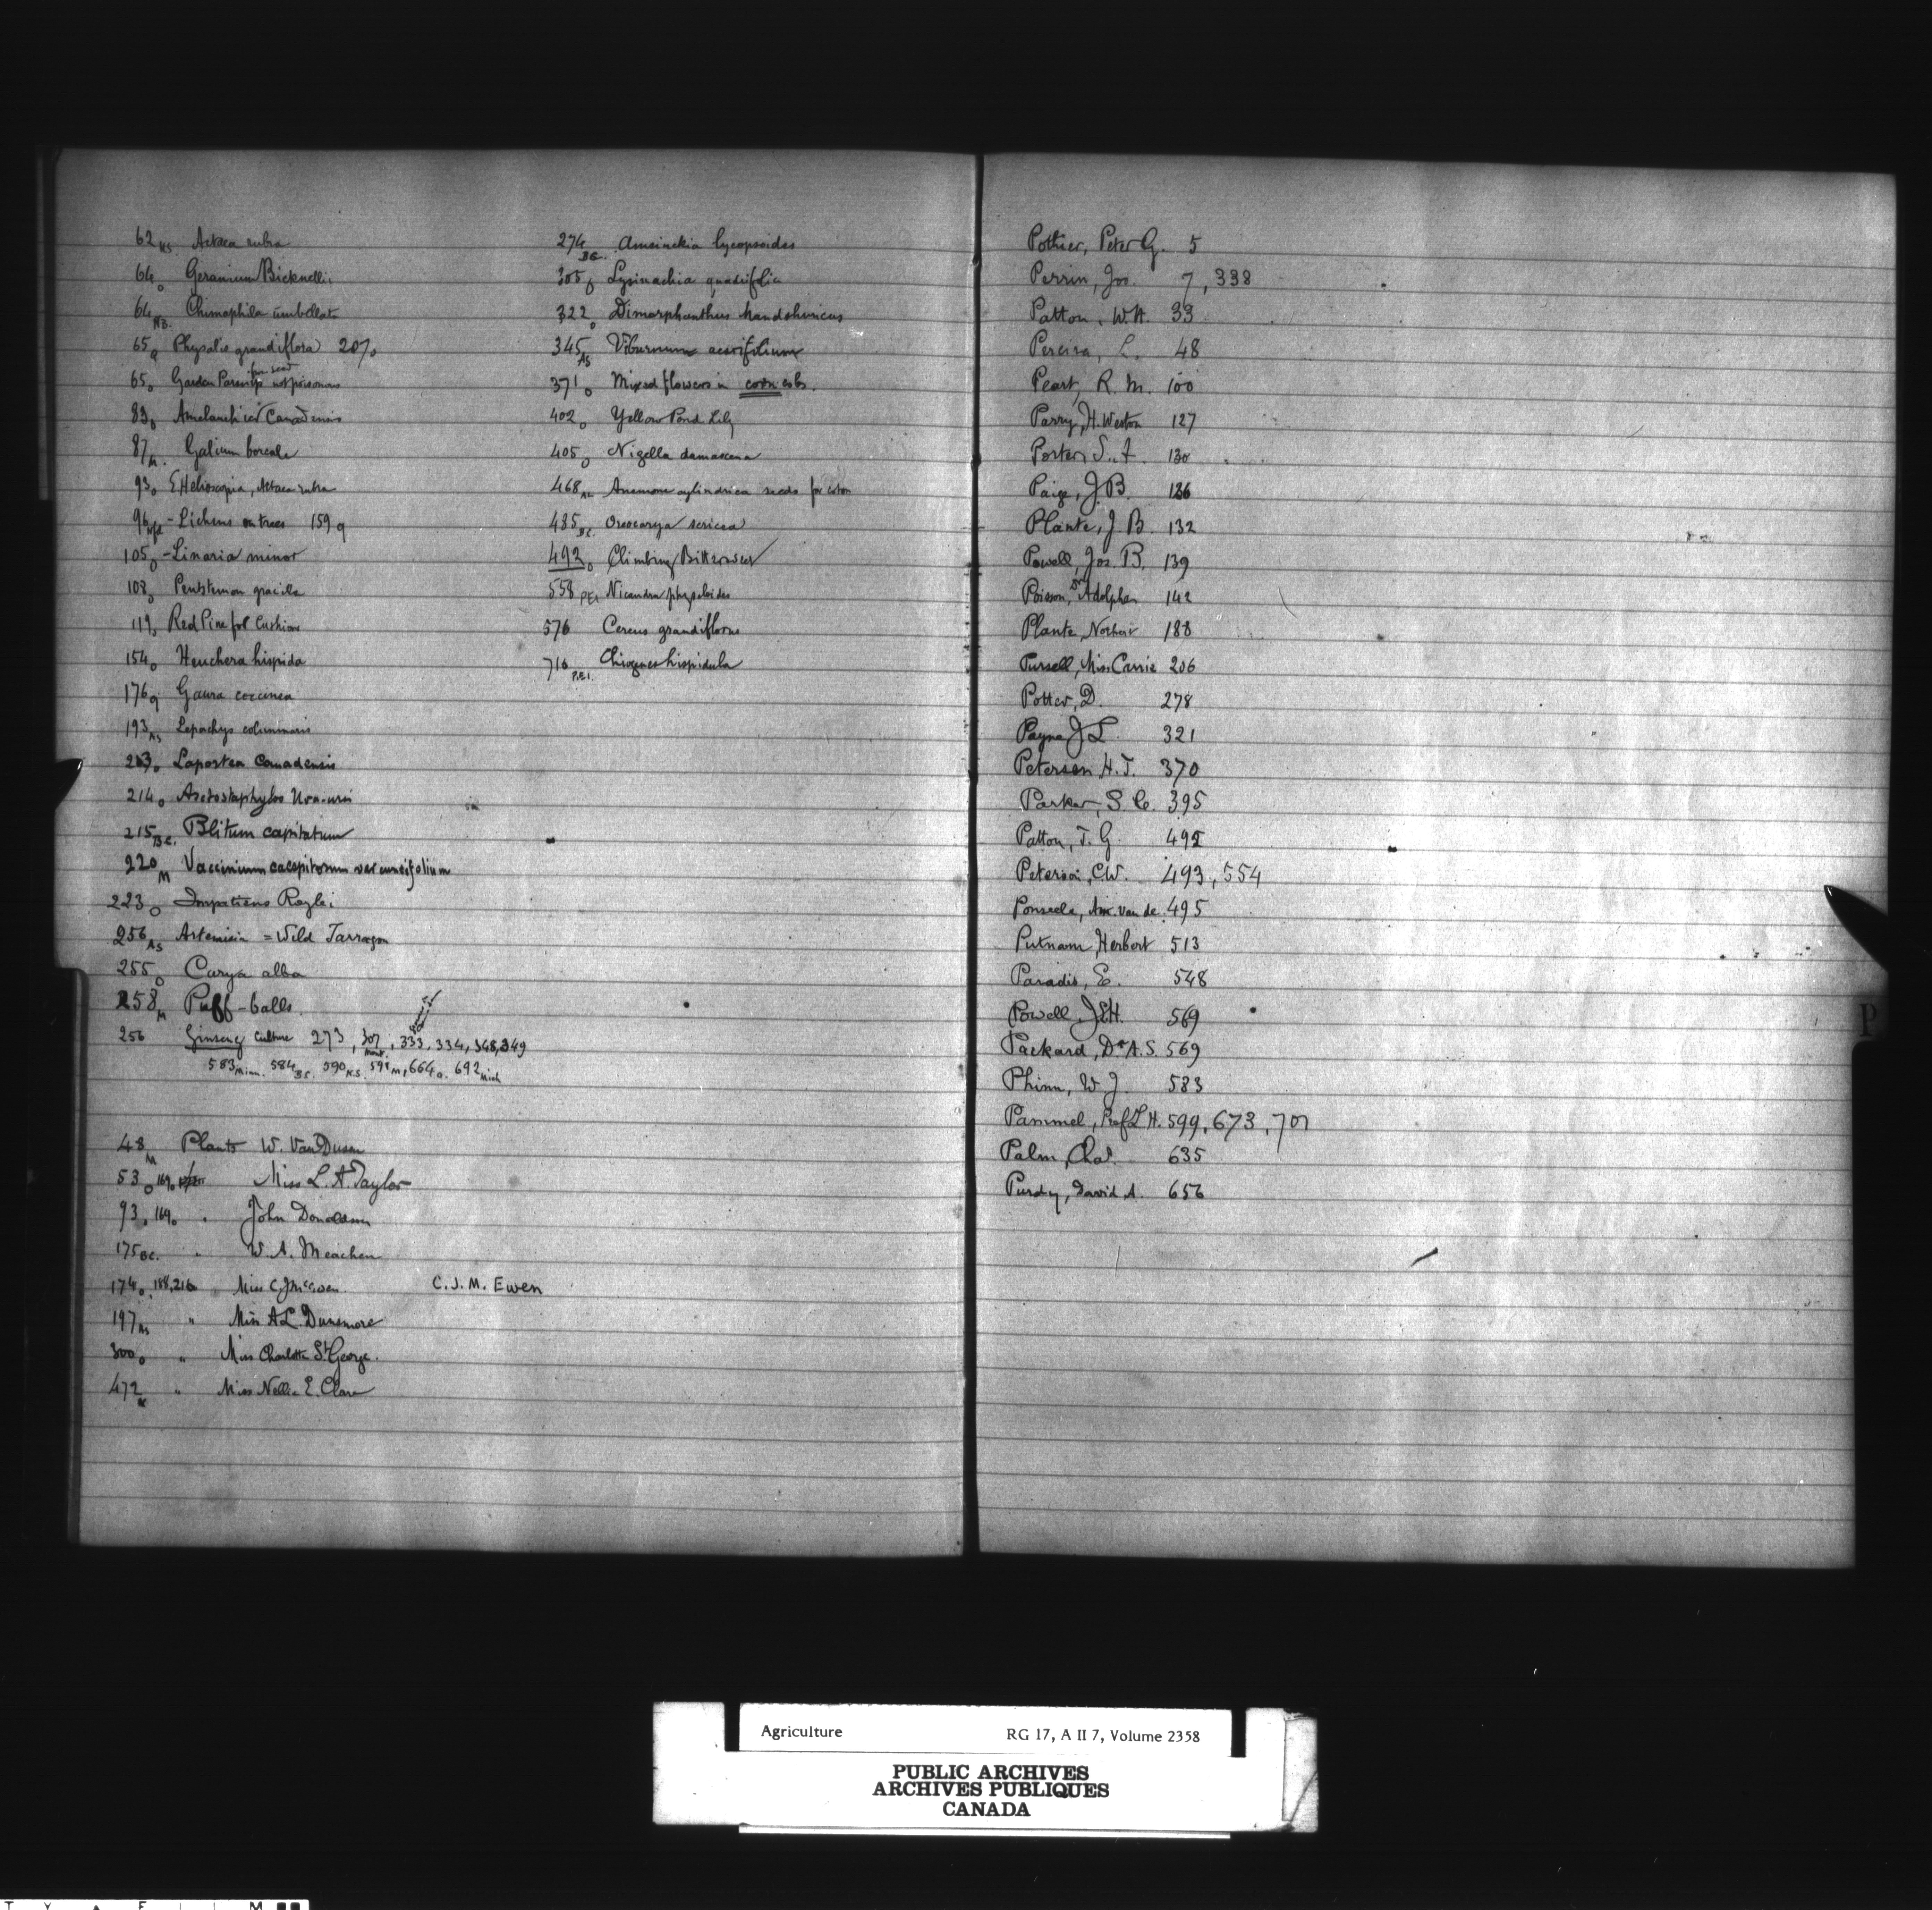 62 NS Actaea rubra
64 O Geranium Bicknellii
64 NB. Chimaphila umbellata
65 Q Physalis grandiflora 207 O
for seed
65 O Garden Parsnip not poisonous
83 O Amelanchier Canadensis
87 M. Galium boreale
93 O E. Helioscopia, Actaea rubra
96 Nfd - Lichens on trees 159 Q
105 O - Linaria minor
108 O Pentstemon gracilis
119 O Red Pine for Cushions
154 O Heuchera hispida
176 Q Gaura coccinea
193 AS Lepachys columnaris
213 O Laportea Canadensis
214 O Arctostaphylos Uva-ursi
215 B.C. Blitum capitatum
220 M Vaccinium caespitosum var cuneifolium
223 O Impatiens Roylei
256 AS Artemisia = Wild Tarragon
255 O Carya alba
258 M Puff-balls.
256 Ginseng Culture 273, 307 Mont., 333, 334, 348, 349
583 Minn. 584 B.C. 590 N.S. 591 M, 664 O. 692 Mich
48 M Plants W. Van Dusen
53 O 169 O Miss L. A. Taylor
93 O 169 O " John Donaldson
175 B.C. " W. A. Meachen
174 O, 188, 216 " Miss C. J. McEwen. C. J. M. Ewen
197 AS " Miss A. L. Dunsmore
300 O " Miss Charlotte St. George.
472 " Miss Nellie E. Clare
274 B.C. Amsinckia lycopsoides
305 O Lysimachia quadrifolia
322 O Dimorphanthus Mandshuricus
345 AS Viburnum acerifolium
371 O Mixed flowers in corn cobs.
402 O Yellow Pond Lily
405 O Nigella damascena
468 Anemone cylindrica seeds for cotton
485 B.C. Oreocarya sericea
492 O Climbing Bittersweet
558 PEI Nicandra physaloides
576 Cereus grandiflorus
716 P.E.I. Chiogenes hispidula
Pothier, Peter G. 5
Perrin, Jos. 7, 338
Patton, W.H. 33
Pereira, L. 48
Peart, R. M. 100
Parry, H. Weston 127
Porter, S. F. 130
Paige, J. B. 136
Plante, J. B. 132
Powell, Jos. B. 139
Poisson, Dr Adolphe 142
Plante, Norbert 188
Pursell, Miss Carrie 206
Potter, D. 278
Payne J L. 321
Peterson H. T. 370
Parker, S. C. 395
Patton, T. G. 492
Peterson, C.W. 493, 554
Ponseele, Am. van de. 495
Putnam, Herbert 513
Paradis, E. 548
Powell, J.E.H. 569
Packard, Dr A. S. 569
Phinn, W J. 583
Pammel, Prof L H. 599, 673, 701
Palm, Chas. 635
Purdy, David A. 656
P
Agriculture RG 17, A II 7, Volume 2358
PUBLIC ARCHIVES
ARCHIVES PUBLIQUES
CANADA